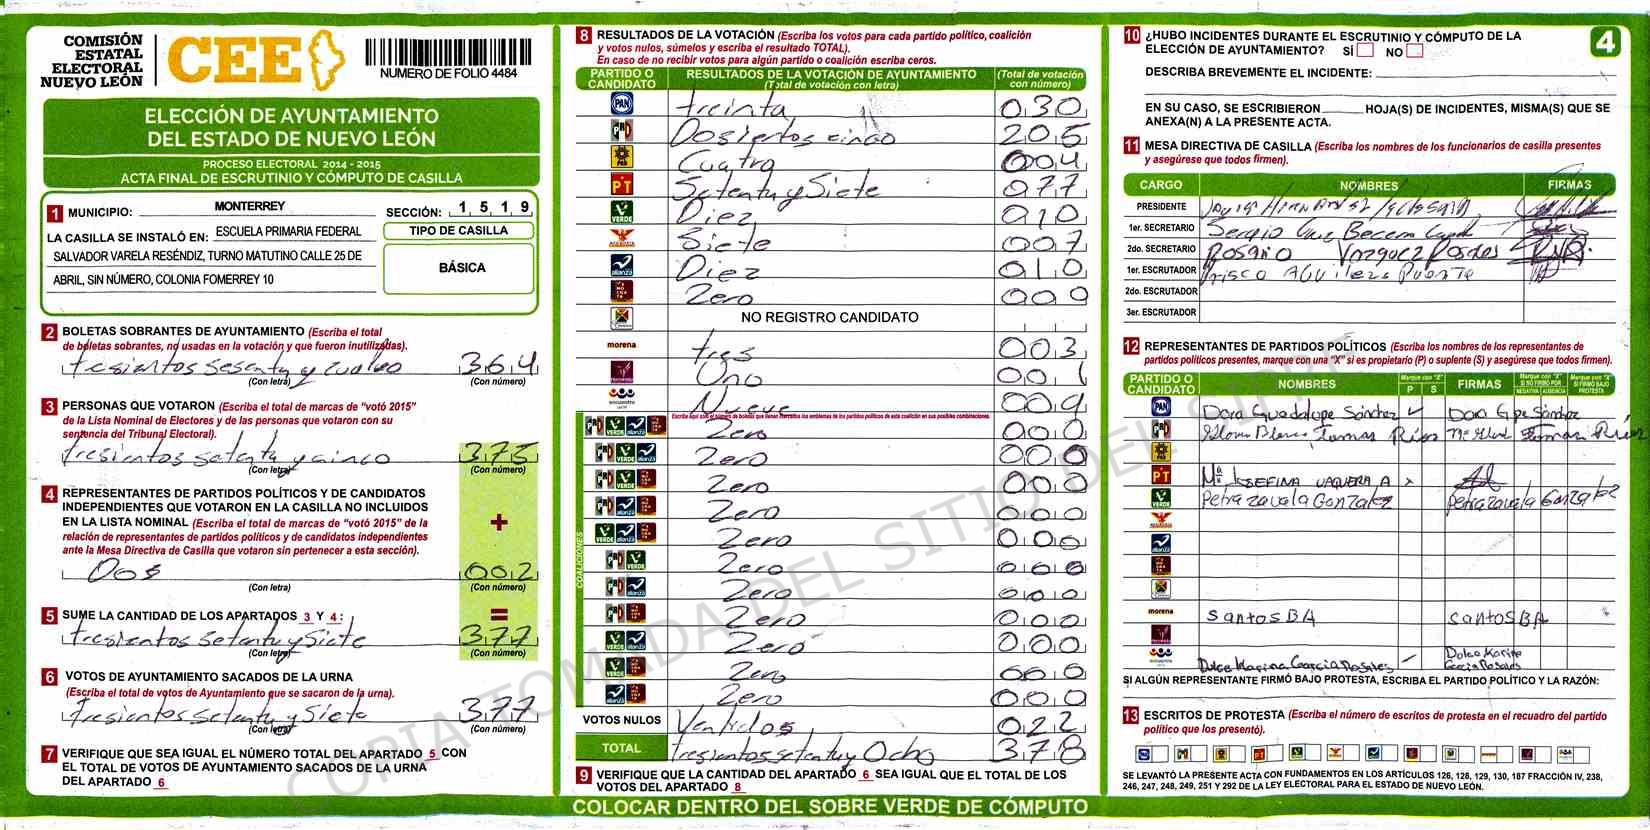 COMISIÓN
ESTATAL
ELECTORAL
NUEVO LEÓN
CEE
NUMERO DE FOLIO 4484
ELECCIÓN DE AYUNTAMIENTO
DEL ESTADO DE NUEVO LEÓN
PROCESO ELECTORAL 2014 - 2015
ACTA FINAL DE ESCRUTINIO Y CÓMPUTO DE CASILLA
1 MUNICIPIO: MONTERREY SECCIÓN: 1 5 1 9
LA CASILLA SE INSTALÓ EN: ESCUELA PRIMARIA FEDERAL
SALVADOR VARELA RESÉNDIZ, TURNO MATUTINO CALLE 25 DE
ABRIL, SIN NÚMERO, COLONIA FOMERREY 10
TIPO DE CASILLA
BÁSICA
2 BOLETAS SOBRANTES DE AYUNTAMIENTO (Escriba el total
de boletas sobrantes, no usadas en la votación y que fueron inutilizadas).
tresientos sesenta y cuatro 364
(Con letra) (Con número)
3 PERSONAS QUE VOTARON (Escriba el total de marcas de “votó 2015”
de la Lista Nominal de Electores y de las personas que votaron con su
sentencia del Tribunal Electoral).
tresientos setenta y cinco 375
(Con letra) (Con número)
4 REPRESENTANTES DE PARTIDOS POLÍTICOS Y DE CANDIDATOS
INDEPENDIENTES QUE VOTARON EN LA CASILLA NO INCLUIDOS
EN LA LISTA NOMINAL (Escriba el total de marcas de “votó 2015” de la
relación de representantes de partidos políticos y de candidatos independientes
ante la Mesa Directiva de Casilla que votaron sin pertenecer a esta sección).
+
Dos 002
(Con letra) (Con número)
5 SUME LA CANTIDAD DE LOS APARTADOS 3 Y 4: =
tresientos setenta y Siete 377
(Con letra) (Con número)
6 VOTOS DE AYUNTAMIENTO SACADOS DE LA URNA
(Escriba el total de votos de Ayuntamiento que se sacaron de la urna).
tresientos setenta y Siete 377
(Con letra) (Con número)
7 VERIFIQUE QUE SEA IGUAL EL NÚMERO TOTAL DEL APARTADO 5 CON
EL TOTAL DE VOTOS DE AYUNTAMIENTO SACADOS DE LA URNA
DEL APARTADO 6
8 RESULTADOS DE LA VOTACIÓN (Escriba los votos para cada partido político, coalición
y votos nulos, súmelos y escriba el resultado TOTAL).
En caso de no recibir votos para algún partido o coalición escriba ceros.
PARTIDO O
CANDIDATO
RESULTADOS DE LA VOTACIÓN DE AYUNTAMIENTO
(Total de votación con letra)
(Total de votación
con número)
PAN treinta 030
Dosientos cinco 205
PRD Cuatro 004
PT Setenta y Siete 077
VERDE Diez 010
Siete 007
alianza Diez 010
Zero 000
NO REGISTRO CANDIDATO
morena tres 003
Uno 001
encuentro Nueve 009
Escriba aquí solo el número de boletas que tienen marcados los emblemas de los partidos políticos de esta coalición en sus posibles combinaciones.
COALICIONES
Zero 000
Zero 000
Zero 000
Zero 000
Zero 000
Zero 000
Zero 000
Zero 000
Zero 000
Zero 000
Zero 000
VOTOS NULOS Ventidos 022
TOTAL tresientos setenta y Ocho 378
9 VERIFIQUE QUE LA CANTIDAD DEL APARTADO 6 SEA IGUAL QUE EL TOTAL DE LOS
VOTOS DEL APARTADO 8
COLOCAR DENTRO DEL SOBRE VERDE DE CÓMPUTO
10 ¿HUBO INCIDENTES DURANTE EL ESCRUTINIO Y CÓMPUTO DE LA
ELECCIÓN DE AYUNTAMIENTO? SÍ NO
4
DESCRIBA BREVEMENTE EL INCIDENTE:
EN SU CASO, SE ESCRIBIERON HOJA(S) DE INCIDENTES, MISMA(S) QUE SE
ANEXA(N) A LA PRESENTE ACTA.
11 MESA DIRECTIVA DE CASILLA (Escriba los nombres de los funcionarios de casilla presentes
y asegúrese que todos firmen).
CARGO NOMBRES FIRMAS
PRESIDENTE
1er. SECRETARIO Sergio Becerra
2do. SECRETARIO Rosario Vazquez Rosales
1er. ESCRUTADOR Aguilera Puente
2do. ESCRUTADOR
3er. ESCRUTADOR
12 REPRESENTANTES DE PARTIDOS POLÍTICOS (Escriba los nombres de los representantes de
partidos políticos presentes, marque con una “X” si es propietario (P) o suplente (S) y asegúrese que todos firmen).
PARTIDO O
CANDIDATO
NOMBRES
Marque con “X”
P S
FIRMAS
Marque con “X”
SI NO FIRMÓ POR
NEGATIVA AUSENCIA
Marque con “X”
SI FIRMÓ BAJO
PROTESTA
PAN Dora Guadalupe Sánchez Dora Gpe Sánchez
Blanca Tomas Rios Tomas Rios
PRD
PT Mª Josefina Vaquera A x
VERDE Petra zavala Gonzalez Petra zavala Gonzalez
alianza
morena Santos BA Santos BA
encuentro Dulce Karina Garcia Rosales Dulce Karina
Garcia Rosales
SI ALGÚN REPRESENTANTE FIRMÓ BAJO PROTESTA, ESCRIBA EL PARTIDO POLÍTICO Y LA RAZÓN:
13 ESCRITOS DE PROTESTA (Escriba el número de escritos de protesta en el recuadro del partido
político que los presentó).
SE LEVANTÓ LA PRESENTE ACTA CON FUNDAMENTOS EN LOS ARTÍCULOS 126, 128, 129, 130, 187 FRACCIÓN IV, 238,
246, 247, 248, 249, 251 Y 292 DE LA LEY ELECTORAL PARA EL ESTADO DE NUEVO LEÓN.
COPIA TOMADA DEL SITIO DEL SIPRE